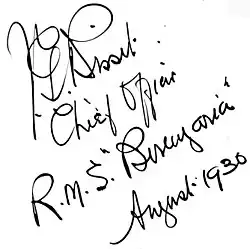 Chief Officer
R.M.S. "Berengaria"
August. 1930